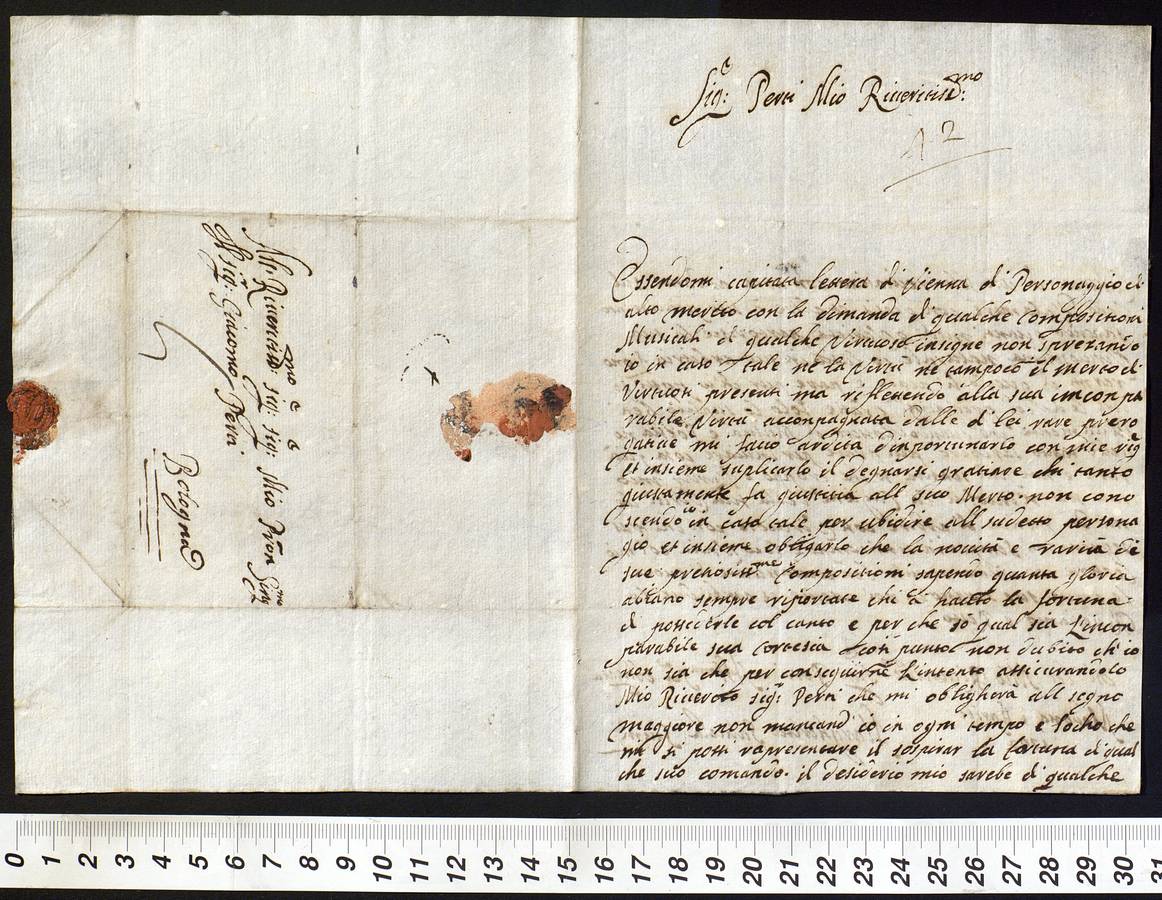 Sig:re Perti Mio Riveritiss:mo
12
Essendomi capitata lettera di Vienna di Personaggio di
alto merito con la dimanda di qualche Compositioni
Musicali di qualche Virtuoso insigne non sprezando
io in caso tale ne la Virtù ne tampoco il merto di
Virtuosi presenti ma riflettendo alla sua incompa
rabile Virtù accompagnata dalle di lei rare prero
gative mi facio ardita d'inportunarlo con mie rig
et insieme suplicarlo il degnarsi gratiare chi tanto
giustamente fa giustitia all suo Merto. non cono
scendo io in caso tale per ubidire all sudetto persona
gio et insieme obligarlo che la novità e rarità di
sue pretiosiss:me Compositioni sapendo quanta gloria
abiano sempre riportate chi à hauto la fortuna
di possederle col canto e per che sò qual sia L'incon
parabile sua Cortesia così punto non dubito ch'io
non sia che per conseguirne L'intento assicurandolo
Mio Riverito sig:r Perti che mi obligherà all segno
maggiore non mancand'io in ogni tempo e locho che
mi si possi rapresentare il sospirar la fortuna di qual
che suo comando. il desiderio mio sarebe di qualche
All Riveritiss:mo sig:re sig:re Mio Pron Sing:mo
Il sig:r Giacomo Perti
Bologna
0 1 2 3 4 5 6 7 8 9 10 11 12 13 14 15 16 17 18 19 20 21 22 23 24 25 26 27 28 29 30 31